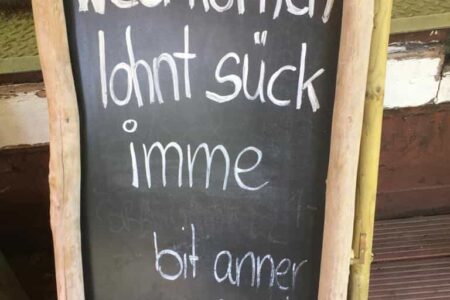 lohnt sück
imme
bit anner